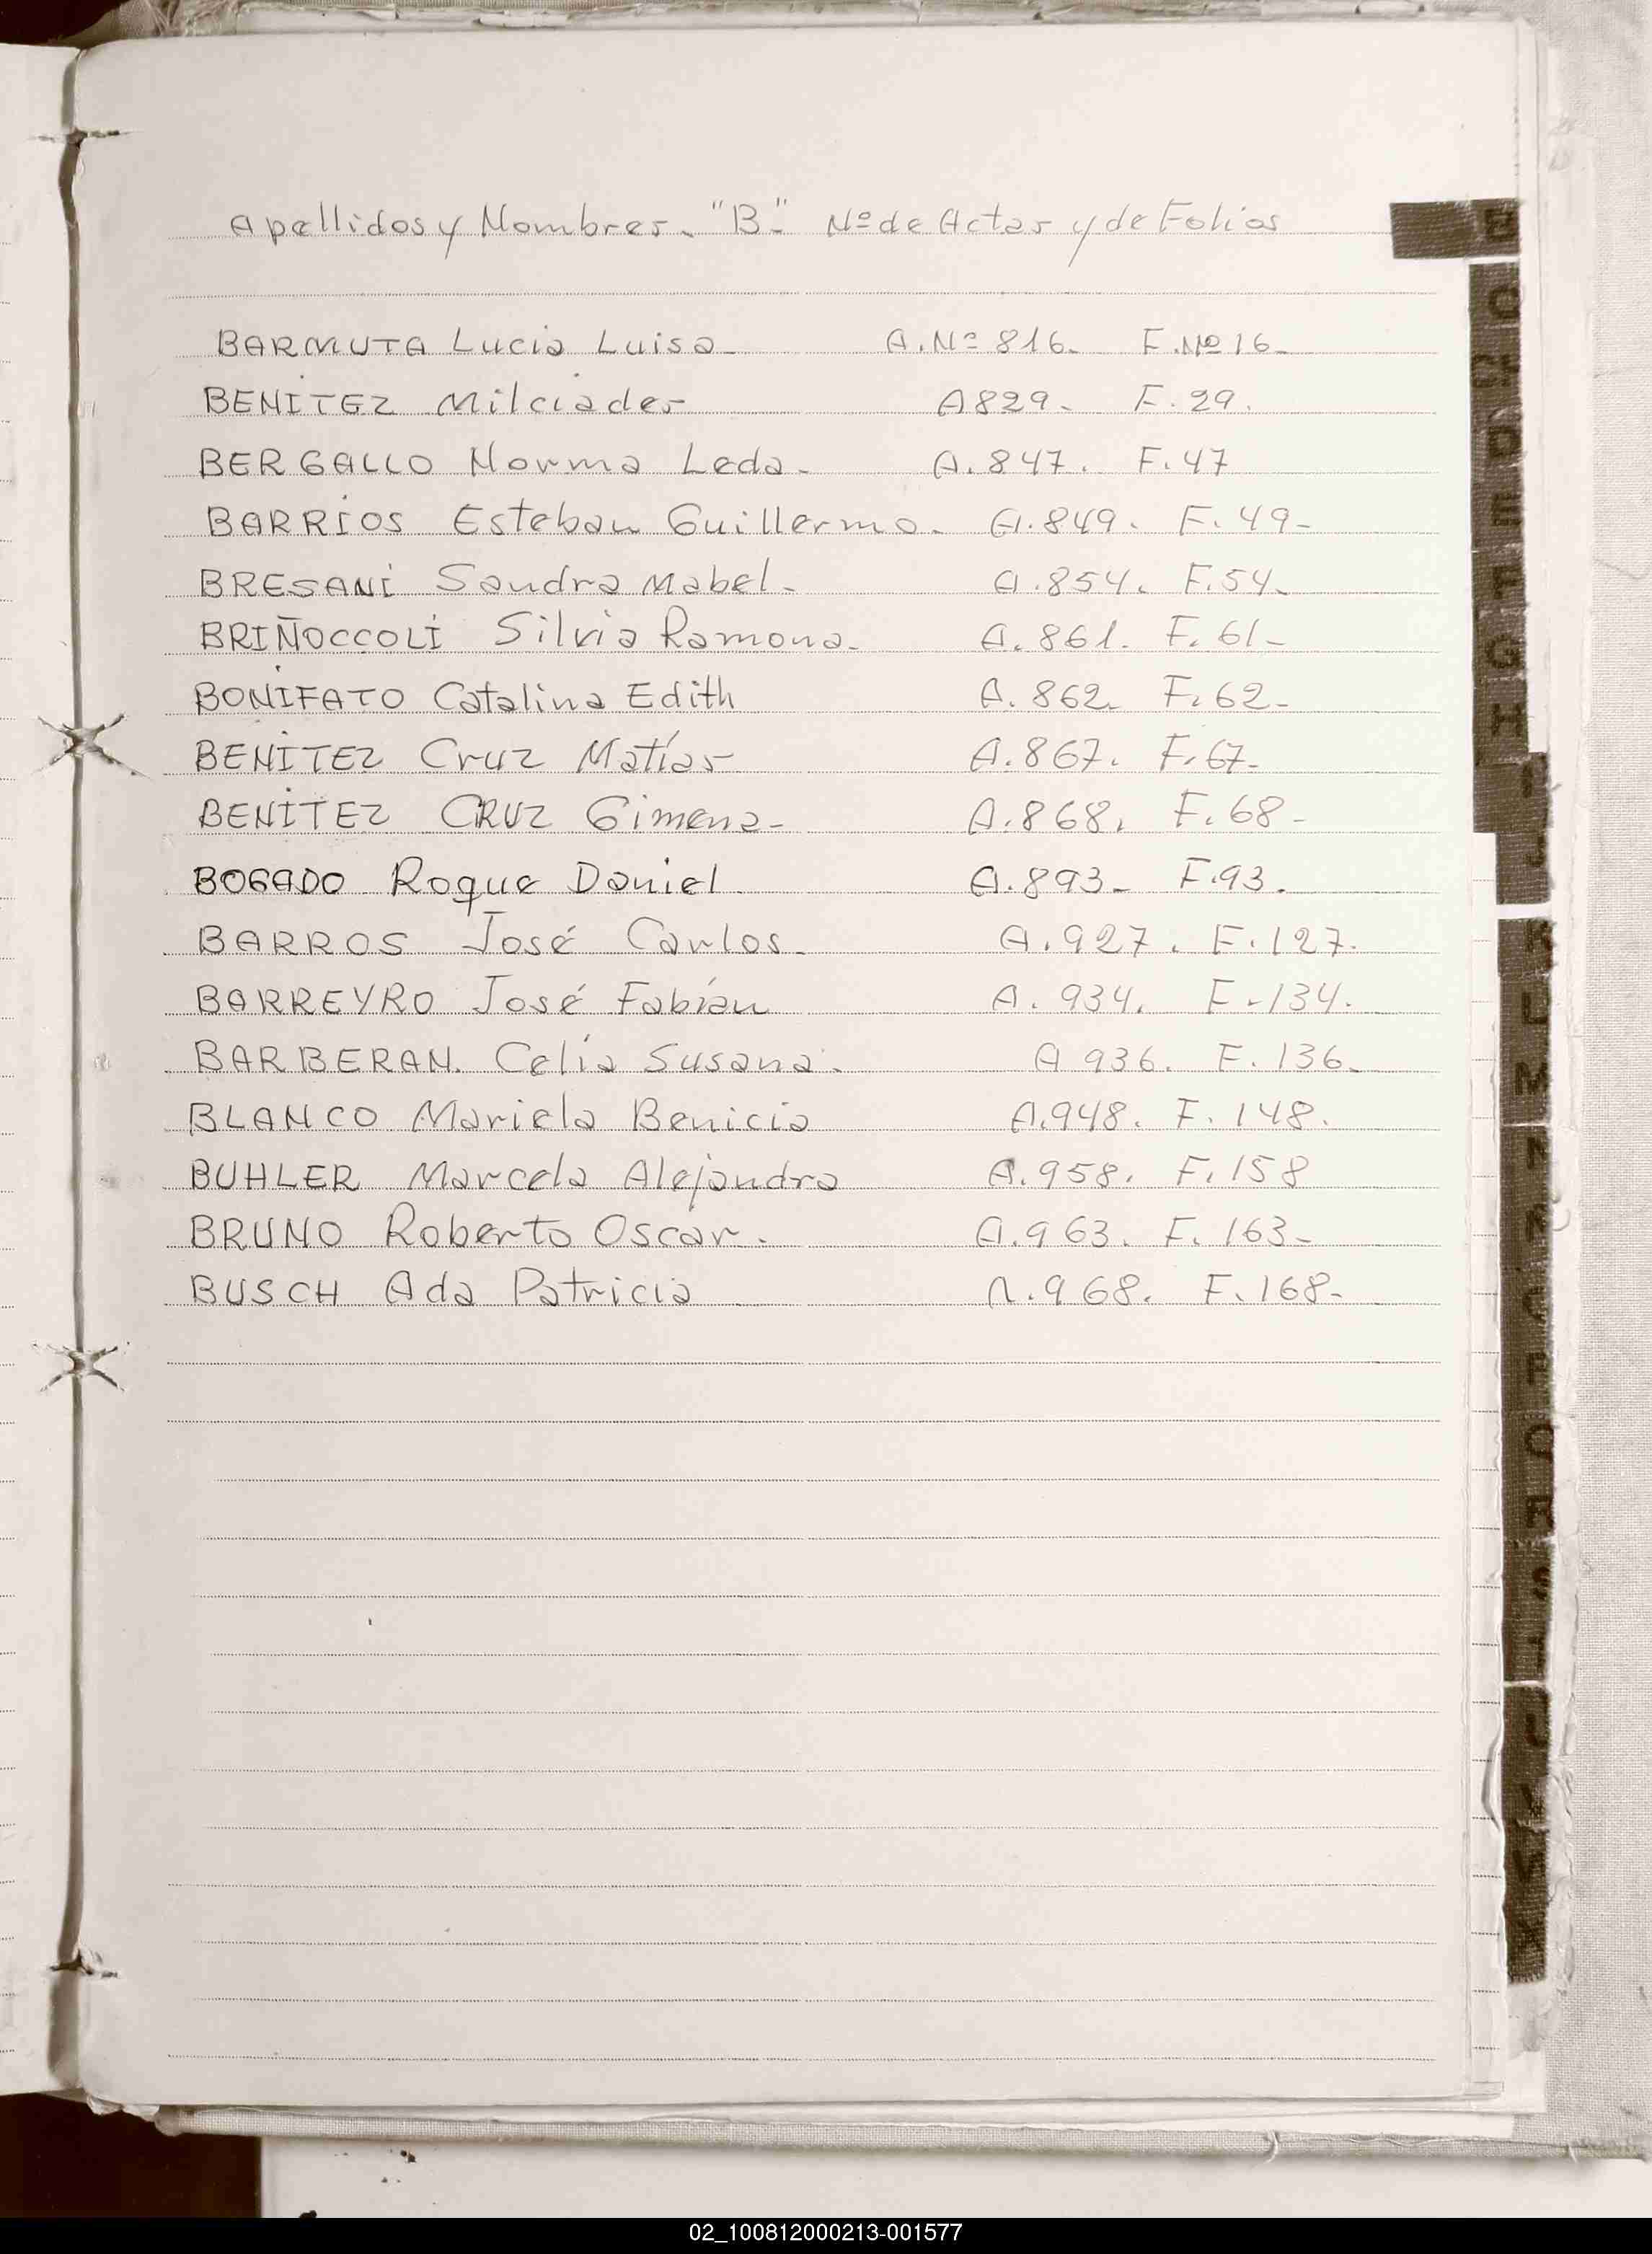 Apellidos y Nombres. "B". Nº de Actas y de Folios
BARMUTA Lucia Luisa. A. Nº 816. F. Nº 16.
BENÍTEZ Milciades A 829. F. 29.
BERGALLO Norma Leda. A. 847. F. 47
BARRÍOS Esteban Guillermo. A. 849. F. 49-
BRESANÍ Sandra Mabel. A. 854. F. 54.
BRIÑOCCOLÍ Silvia Ramona. A. 861. F. 61-
BONIFATO Catalina Edith A. 862. F. 62-
BENÍTEZ Cruz Matías A. 867. F. 67-
BENÍTEZ CRUZ Gimena- A. 868. F. 68-
BOGADO Roque Daniel A. 893- F. 93.
BARROS José Carlos. A. 927. F. 127.
BARREYRO José Fabían A. 934. F-134.
BARBERAN. Celia Susana. A 936. F. 136.
BLANCO Mariela Benicia A. 948. F. 148.
BUHLER Marcela Alejandra A. 958. F. 158
BRUNO Roberto Oscar. A. 963. F. 163-
BUSCH Ada Patricia A. 968. F. 168-
B
C
D
E
F
G
H
I
J
K
L
M
S
02_100812000213-001577